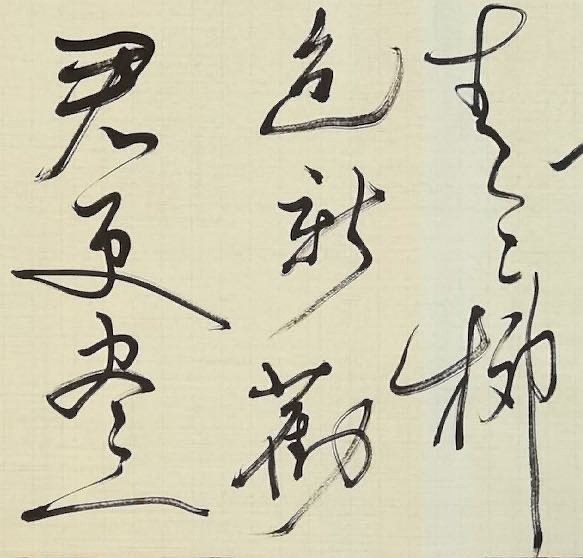 青々柳
色新勸
君更盡一